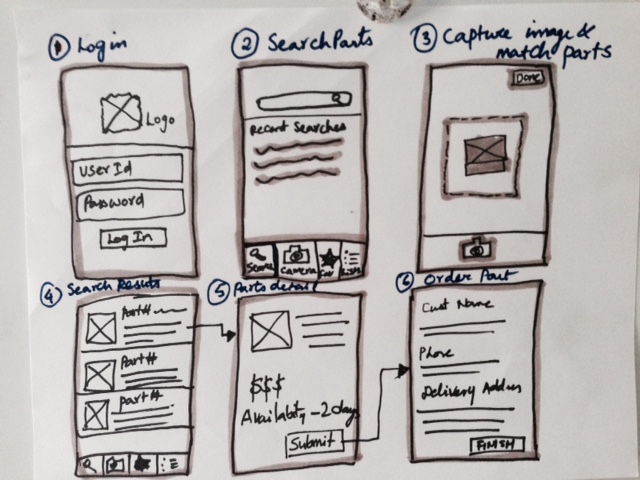 1 Log in
Logo
User Id
Password
Log In
2 Search Parts
Recent Searches
Search
Camera
Fav
Lists
3 Capture image &
match parts
Done
4 Search Results
Part#
Part#
Part#
5 Parts detail
$$$
Availability - 2 days
Submit
6 Order Part
Cust Name
Phone
Delivery Address
FINISH